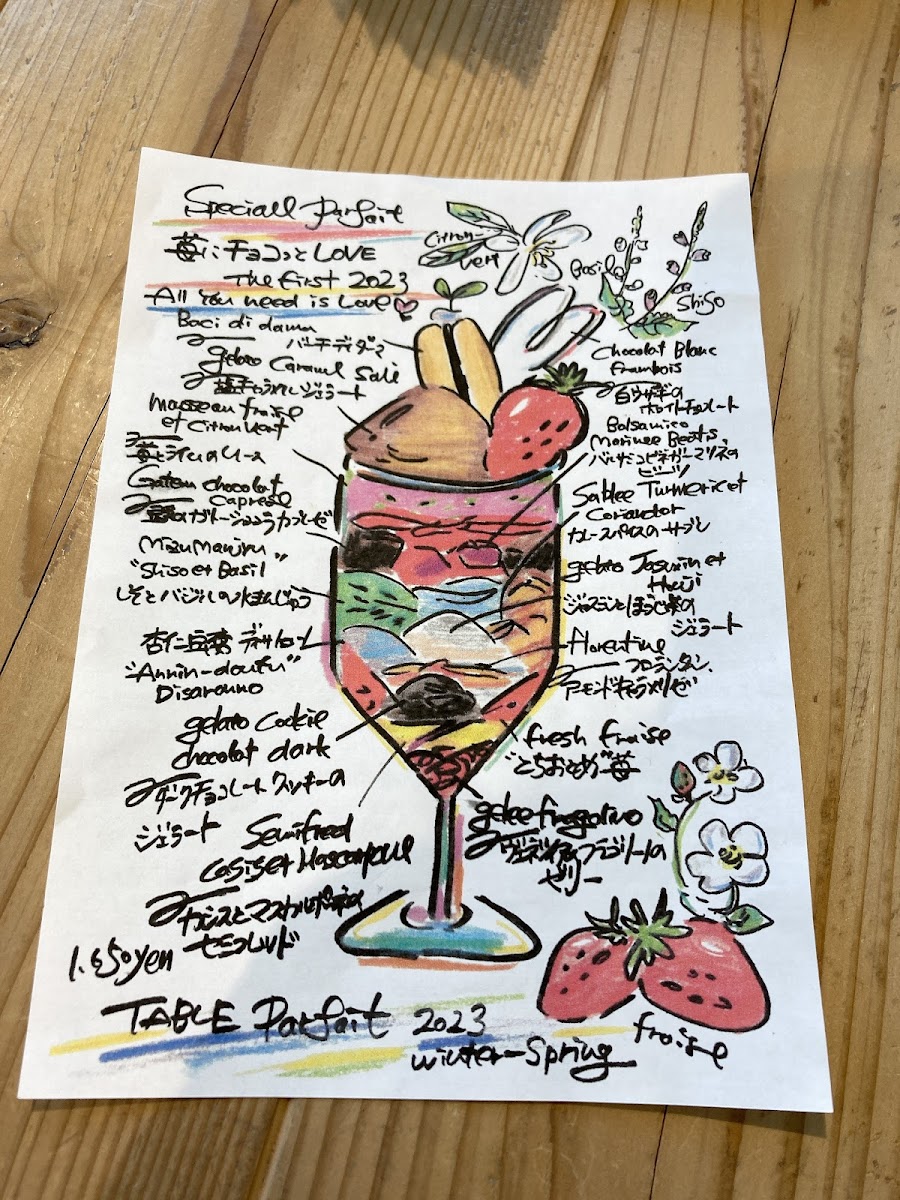 Speciall Parfait
苺にチョコっとLOVE
The first 2023
All You need is Love
Baci di dama
バーチディダーマ
gelato Caramel Salé
塩キャラメルジェラート
mousseau fraise
et Citron vert
苺とライムのムース
Gateau chocolat
Caprese
ガトーショコラカプレーゼ
Mizu Manjyu
"Shiso et Basil"
しそとバジルの水まんじゅう
杏仁豆腐 ディサローノ
"Annin-doufu"
Disaronno
gelato Cookie
chocolat dark
ダークチョコレートクッキーの
ジェラート
Semifred
cassis et Mascarpone
カシスとマスカルポーネの
セミフレッド
1.650yen
Citron
vert
Basil
Shiso
Chocolat Blanc
frambois
白ウサギの
ホワイトチョコレート
Balsamico
Marinee Beets
バルサミコビネガーマリネの
ビーツ
Sablee Turmeric et
Coriandor
カレースパイスのサブレ
gelato Jasmin et
Houji
ジャスミンとほうじ茶の
ジェラート
florentine
フロランタン
アーモンドキャラメリゼ
fresh fraise
"とちおとめ"苺
gelee fragolino
ヴェネツィアのフラゴリーノの
ゼリー
fraise
TABLE Parfait 2023
winter-Spring